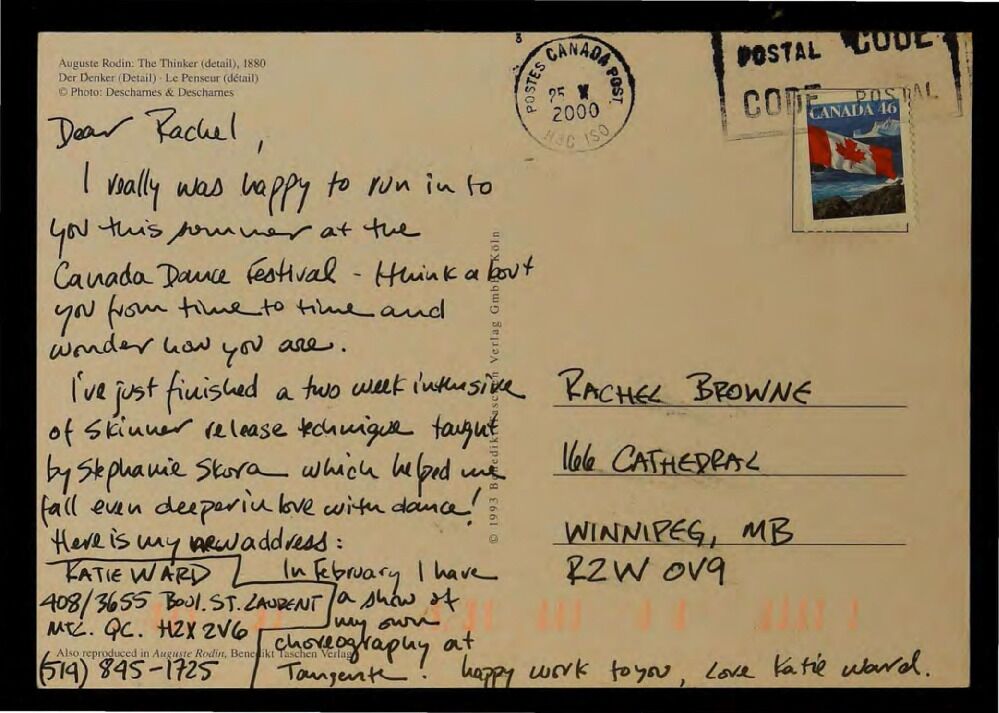 Auguste Rodin: The Thinker (detail), 1880
Der Denker (Detail) · Le Penseur (détail)
© Photo: Descharnes & Descharnes
Dear Rachel,
I really was happy to run in to
you this summer at the
Canada Dance Festival - I think about
you from time to time and
wonder how you are.
I've just finished a two week intensive
of Skinner release technique taught
by Stephanie Skora which helped me
fall even deeper in love with dance!
Here is my new address:
KATIE WARD
408/3655 BOUL. ST. LAURENT
MTL. QC. H2X 2V6
(514) 845-1725
In February I have
a show of
my own
choreography at
Tangente. happy work to you, Love Katie Ward.
Also reproduced in Auguste Rodin, Benedikt Taschen Verlag
© 1993 Benedikt Taschen Verlag GmbH, Köln
8
POSTES CANADA POST
25 X
2000
POSTAL CODE
CODE POSTAL
CANADA 46
RACHEL BROWNE
166 CATHEDRAL
WINNIPEG, MB
R2W 0V9